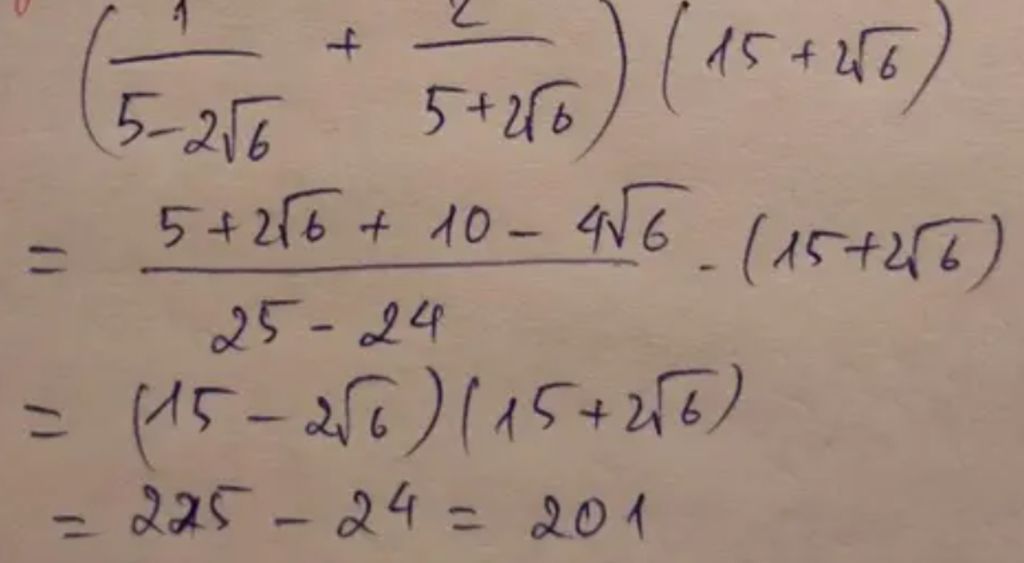 (1/(5-2√6) + 2/(5+2√6)) (15+2√6)
= (5+2√6 + 10 - 4√6)/(25 - 24) . (15+2√6)
= (15 - 2√6)(15+2√6)
= 225 - 24 = 201